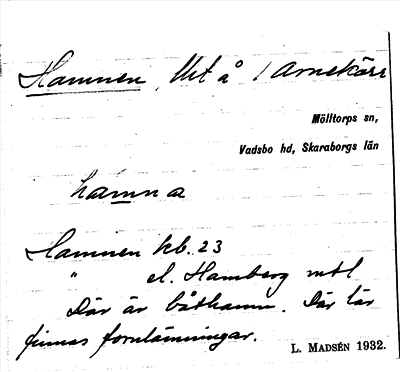 Hamnen, Utå / Arnekärr
Mölltorps sn,
Vadsbo hd, Skaraborgs län
hamna
Hamnen kb. 23
" el. Hamberg mtl
Där är båthamn. Där lär
finnas fornlämningar.
L. MADSÉN 1932.